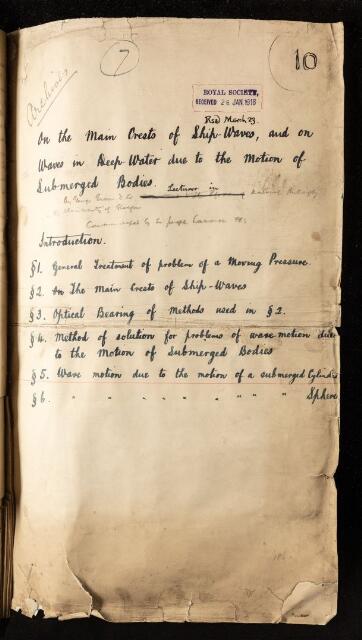 7
10
Archives
ROYAL SOCIETY,
RECEIVED 26 JAN. 1918
Rsd March. 29.
On the Main Crests of Ship-Waves, and on
Waves in Deep Water due to the Motion of
Submerged Bodies.
Lecturer in Natural Philosophy
By George Green D.Sc.
University of Glasgow
Communicated by Sir Joseph Larmor FRS.
Introduction.
§1. General Treatment of problem of a Moving Pressure.
§2. On the Main Crests of Ship-Waves
§3. Optical Bearing of Methods used in §2.
§4. Method of solution for problems of wave motion due
to the Motion of Submerged Bodies
§5. Wave motion due to the motion of a submerged Cylinder
§6. " " " " " " " " Sphere